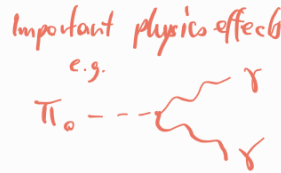 Important physics effects
e.g.
γ
π₀
γ